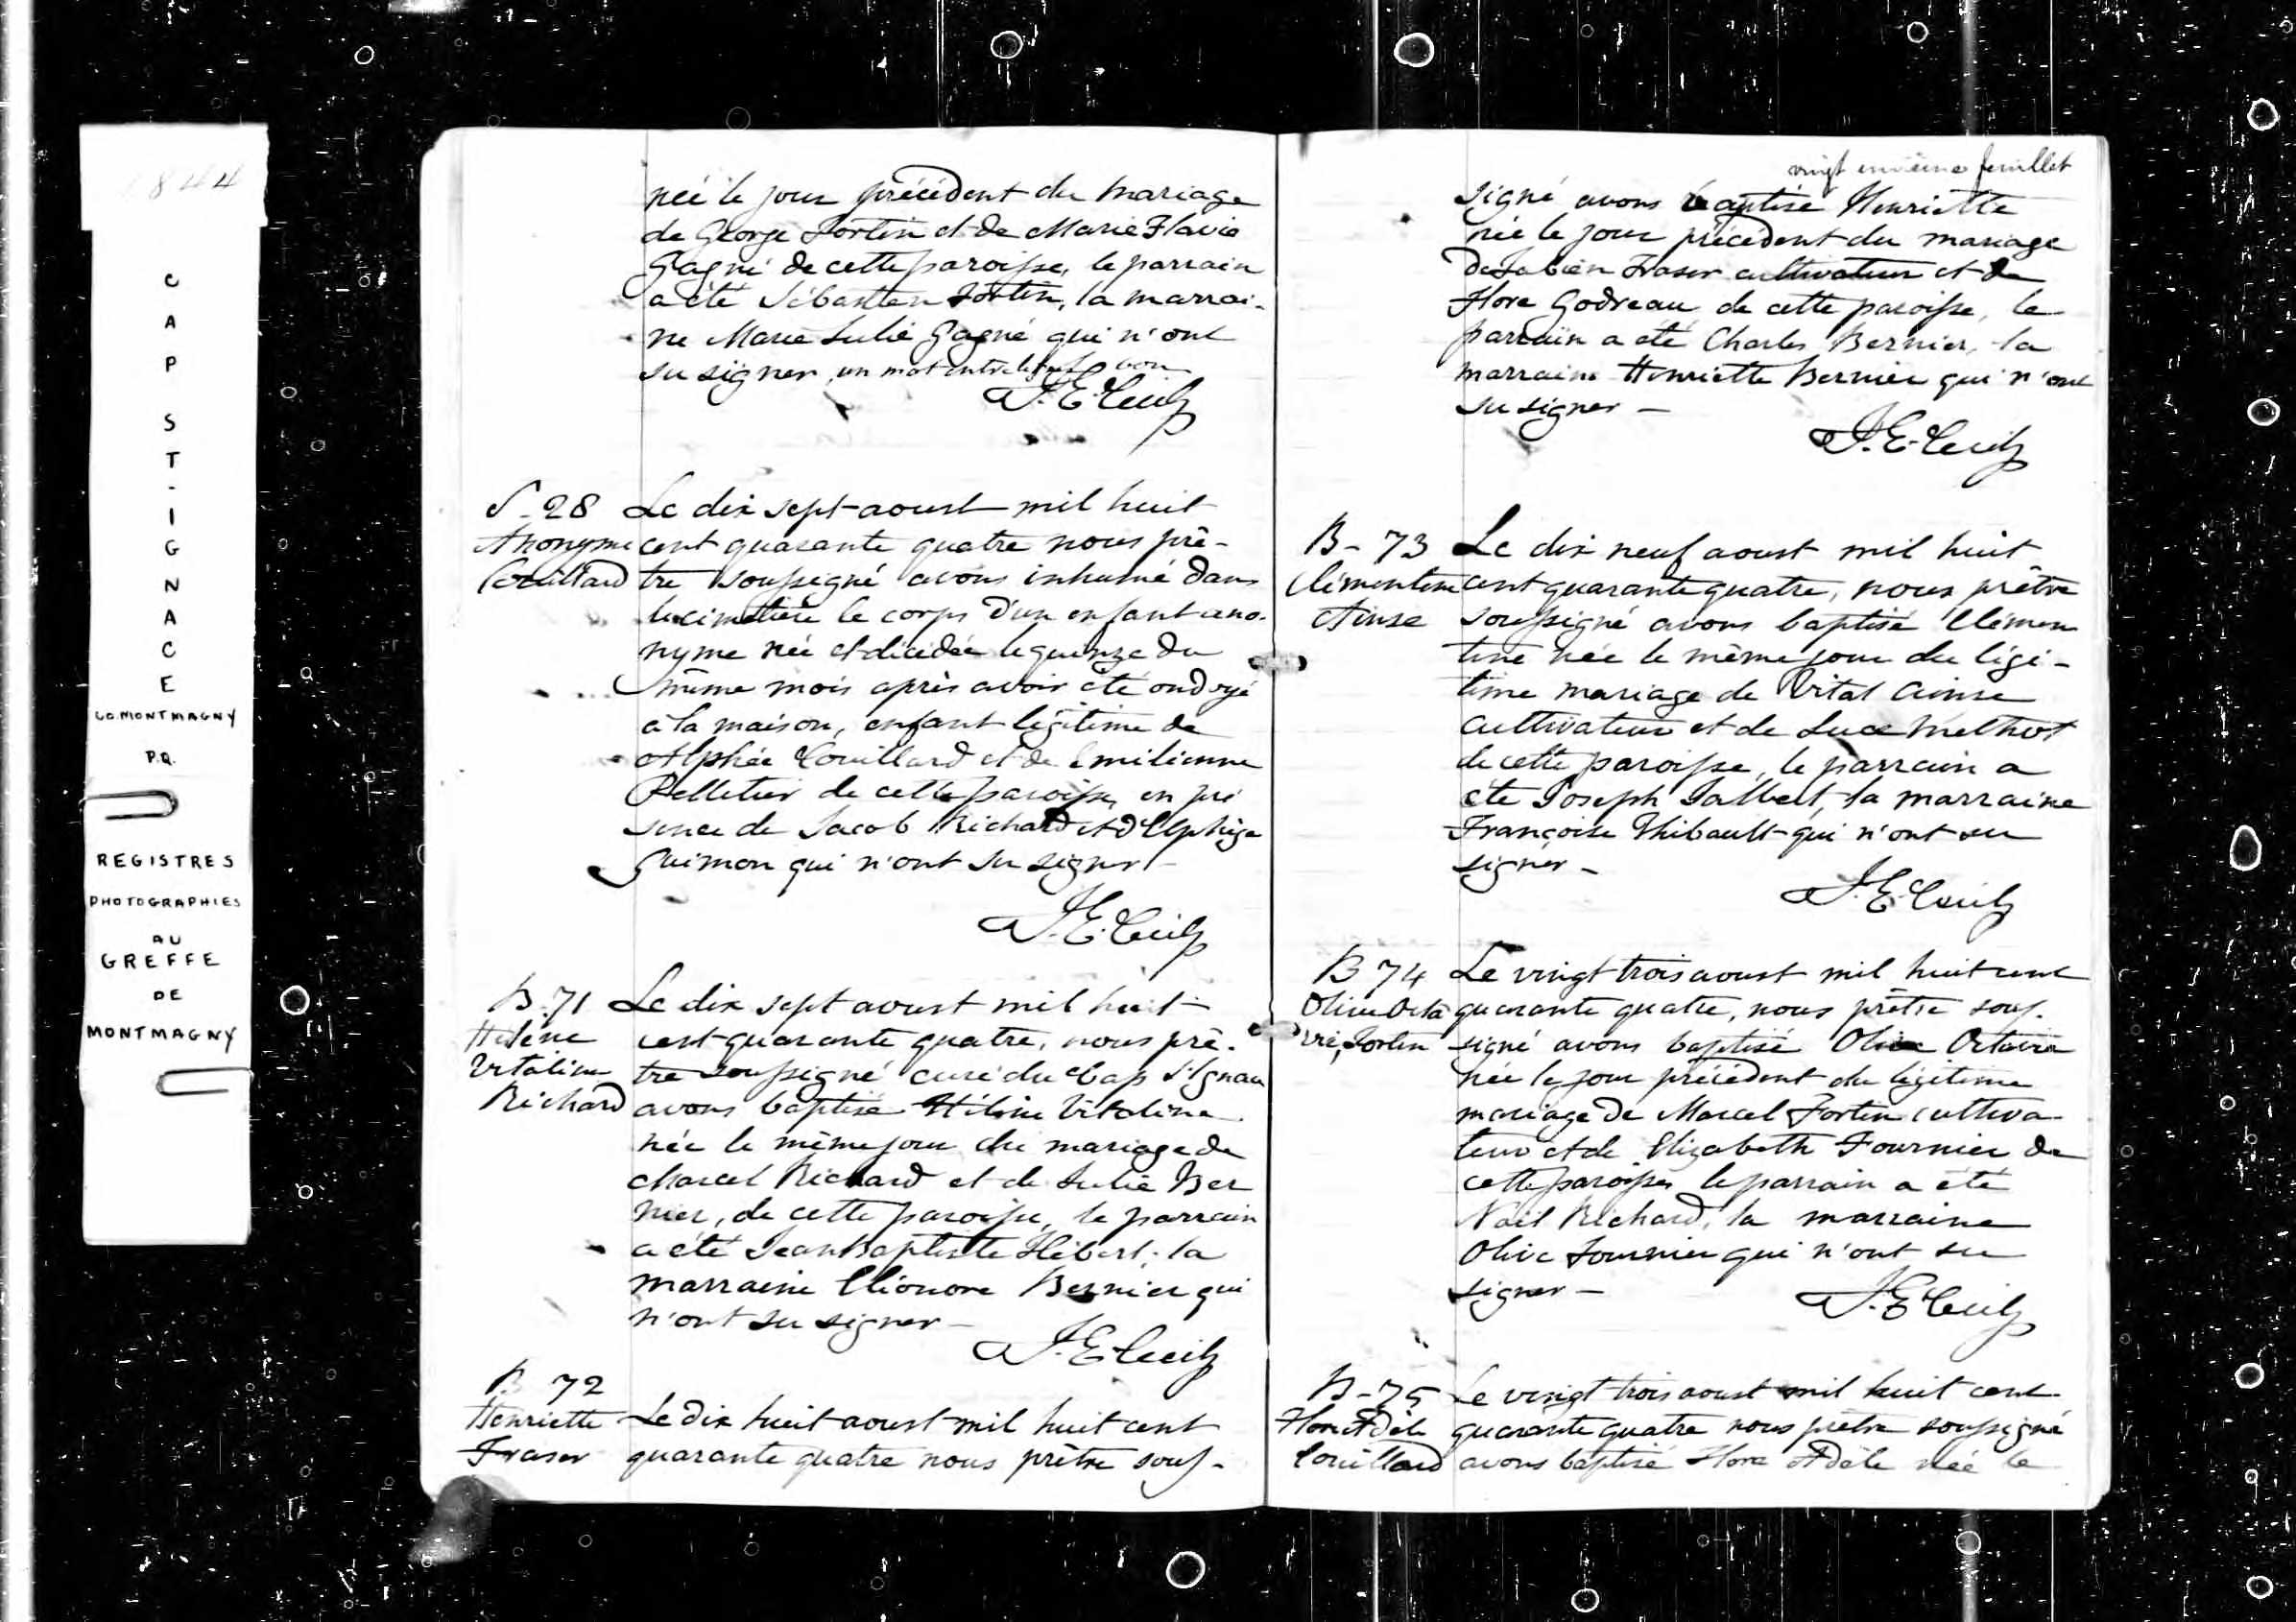 1844
CAP ST-IGNACE
CO. MONTMAGNY
P.Q.
REGISTRES
PHOTOGRAPHIES
AU
GREFFE
DE
MONTMAGNY
née le jour précédent du mariage
de George Fortin et de Marie Flavie
Gagné de cette paroisse, le parrain
a été Sébastien Fortin, la marrai-
ne Marie Julie Gagné qui n'ont
su signer, un mot entre lignes bon
J. E. Cecil
S-28
Anonyme
Couillard
Le dix sept aoust mil huit
cent quarante quatre nous prê-
tre soussigné avons inhumé dans
le cimetière le corps d'un enfant ano-
nyme née et décédée le quinze du
même mois après avoir été ondoyé
à la maison, enfant légitime de
Alphée Couillard et de Emilienne
Pelletier de cette paroisse, en pré
sence de Jacob Richard et d'Elphége
Guimon qui n'ont su signer -
J. E. Cecil
B-71
Helène
Vitaline
Richard
Le dix sept aoust mil huit
cent quarante quatre, nous prê-
tre soussigné curé du Cap St Ignace
avons baptisé Hélène Vitaline
née le même jour du mariage de
Marcel Richard et de Julie Ber
nier, de cette paroisse, le parrain
a été Jean Baptiste Hébert, la
marraine Eléonore Bernier qui
n'ont su signer -
J. E. Cecil
B 72
Henriette
Fraser
Le dix huit aoust mil huit cent
quarante quatre nous prêtre sous-
vingt unième feuillet
signé avons baptisé Henriette
née le jour précédent du mariage
de Fabien Fraser cultivateur et de
Flore Godreau de cette paroisse, le
parrain a été Charles Bernier, la
marraine Henriette Bernier qui n'ont
su signer -
J. E. Cecil
B-73
Clémentine
Ainse
Le dix neuf aoust mil huit
cent quarante quatre, nous prêtre
soussigné avons baptisé Clémen
tine née le même jour du légi-
time mariage de Vital Ainse
cultivateur et de Luce Methot
de cette paroisse, le parrain a
été Joseph Jalbert, la marraine
Françoise Thibault qui n'ont su
signer -
J. E. Cecil
B 74
Olive Octa
vie, Fortin
Le vingt trois aoust mil huit cent
quarante quatre, nous prêtre sous-
signé avons baptisé Olive Octavie
née le jour précédent du légitime
mariage de Marcel Fortin cultiva-
teur et de Elizabeth Fournier de
cette paroisse le parrain a été
Noël Richard, la marraine
Olive Fournier qui n'ont su
signer -
J. E. Cecil
B-75
Flore Adèle
Couillard
Le vingt trois aoust mil huit cent
quarante quatre nous prêtre soussigné
avons baptisé Flore Adèle née le